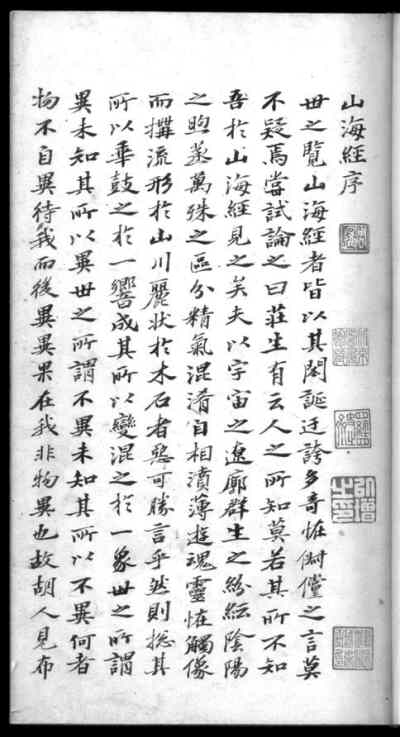 山海經序
丗之覽山海經者皆以其閎誕迂誇多奇恠俶儻之言莫
不疑焉嘗試論之曰莊生有云人之所知莫若其所不知
吾於山海經見之矣夫以宇宙之遼廓群生之紛紜陰陽
之煦蒸萬殊之區分精氣混淆自相濆薄遊魂靈恠觸像
而搆流形於山川麗狀於木石者惡可勝言乎然則揔其
所以乖鼓之於一響成其所以變混之於一象丗之所謂
異未知其所以異丗之所謂不異未知其所以不異何者
物不自異待我而後異異果在我非物異也故胡人見布